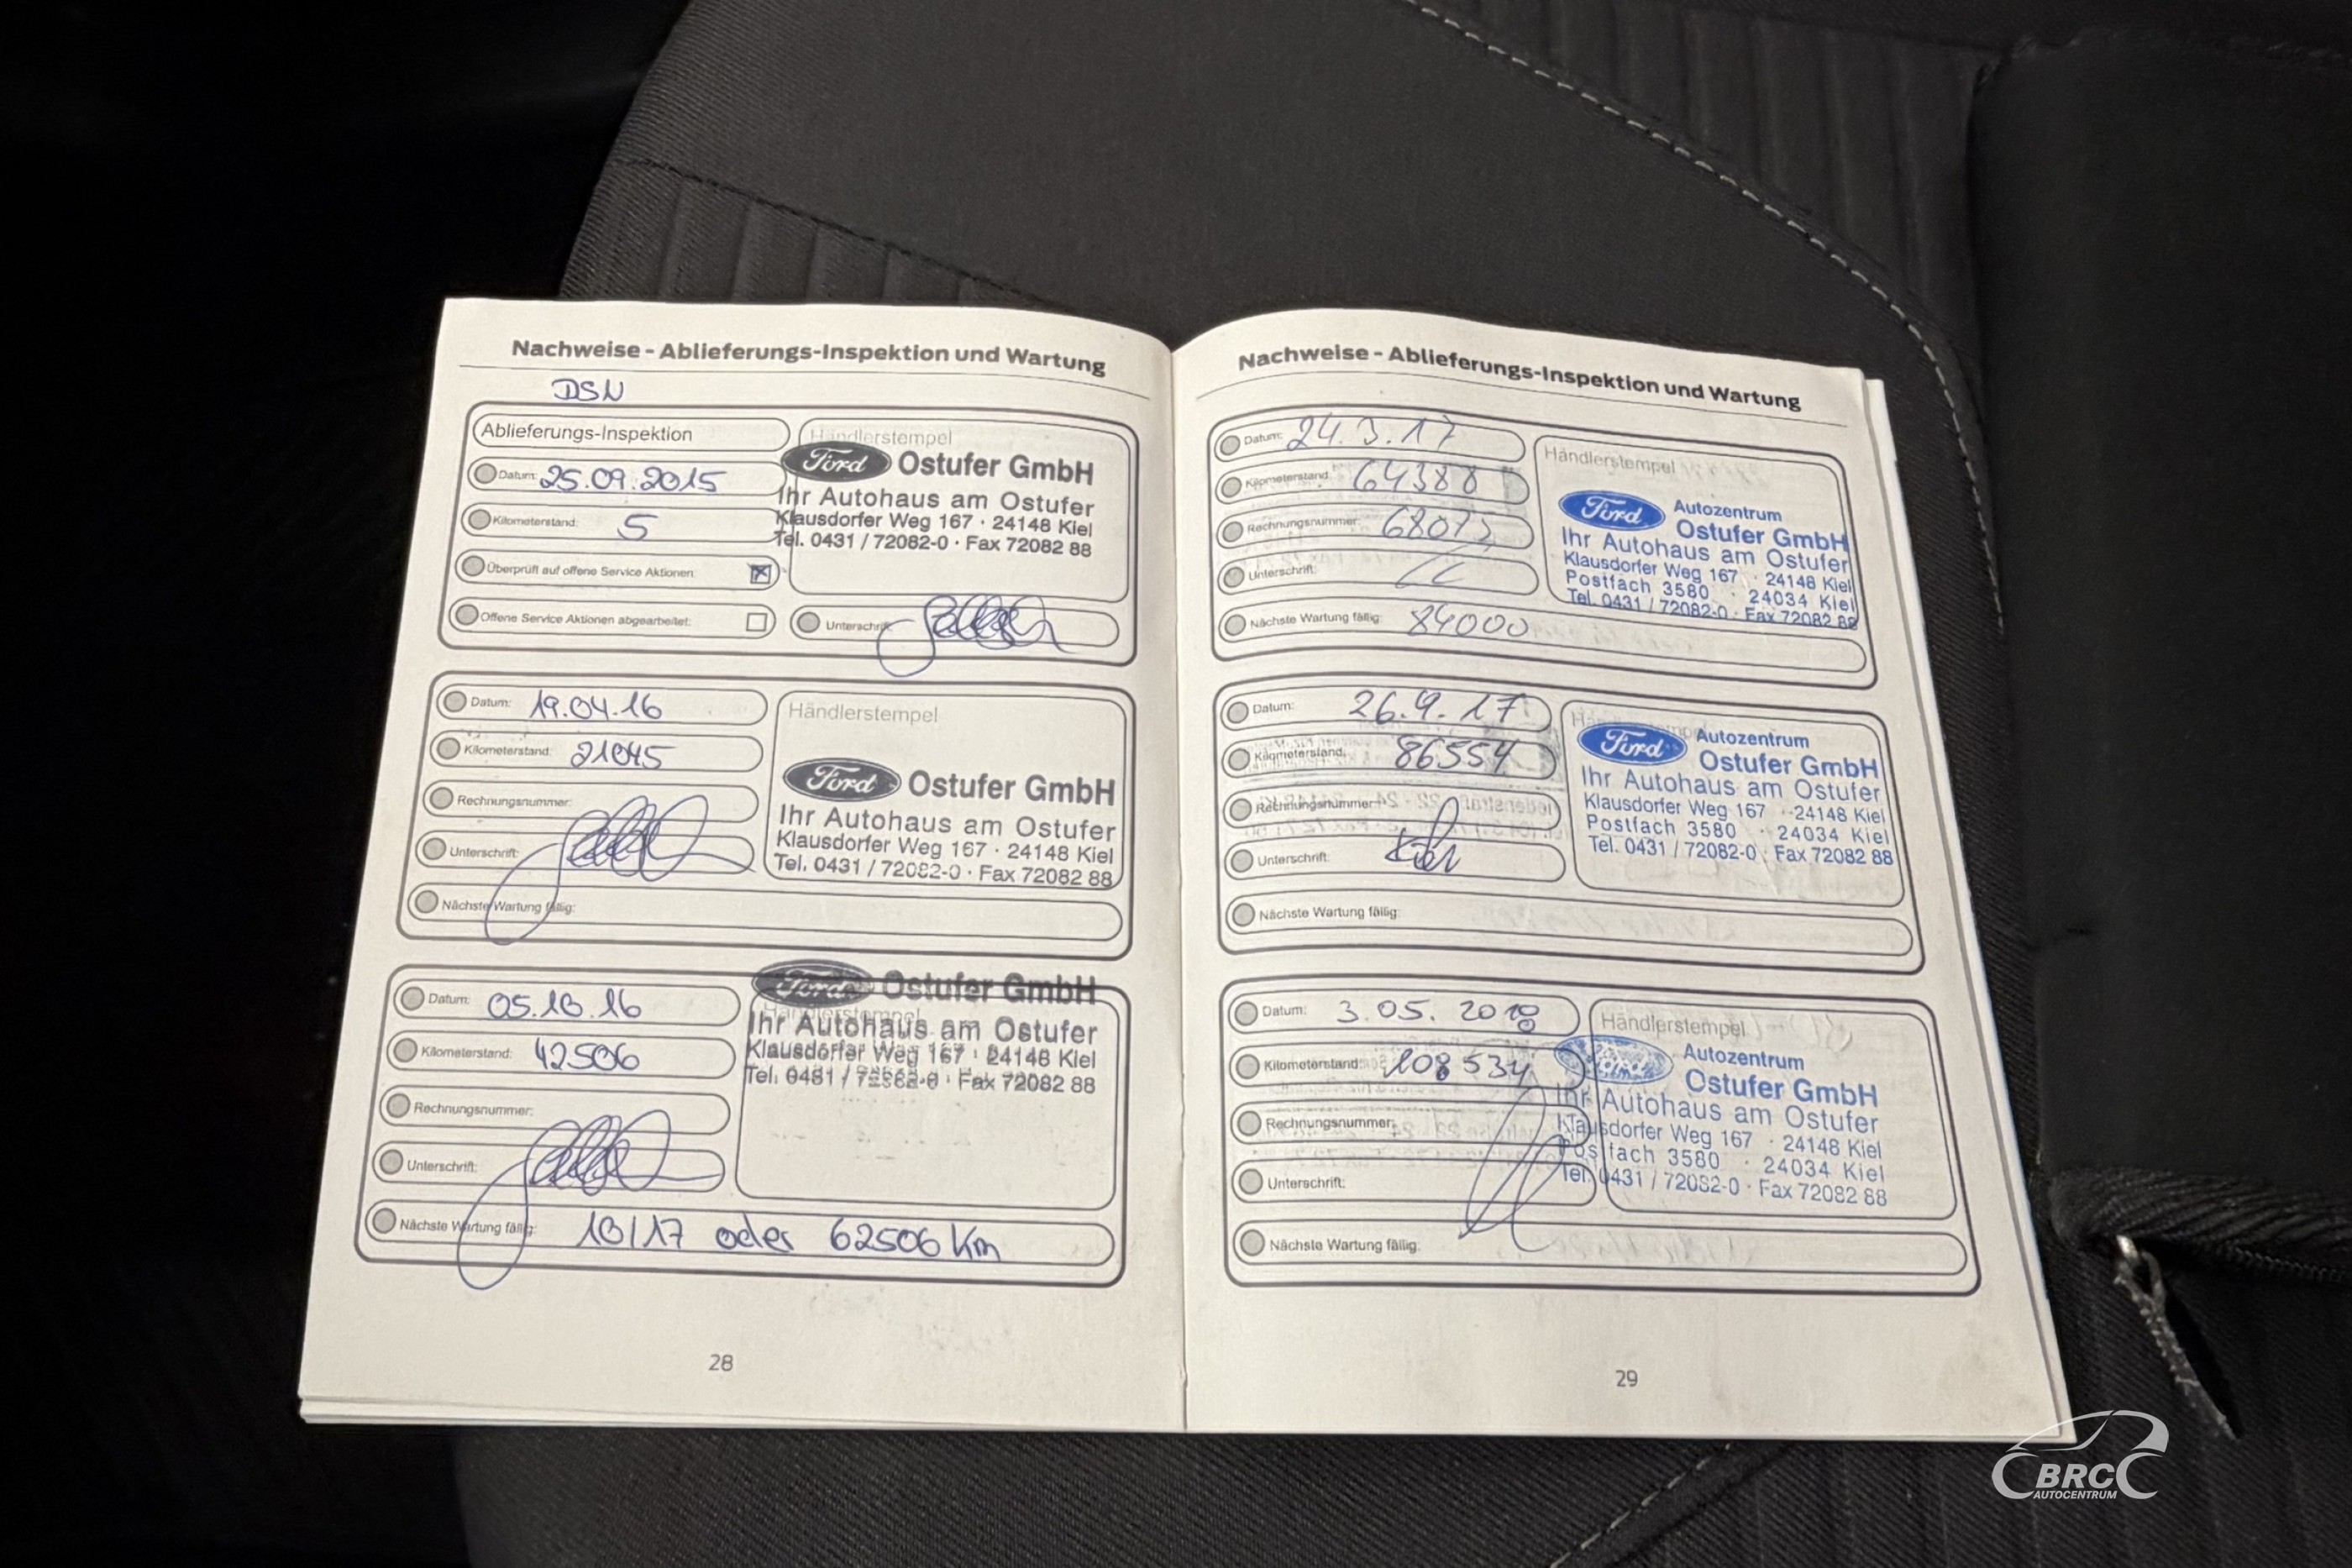 Nachweise - Ablieferungs-Inspektion und Wartung
DSN
Ablieferungs-Inspektion
Datum: 25.09.2015
Kilometerstand: 5
Überprüft auf offene Service Aktionen:
Offene Service Aktionen abgearbeitet:
Händlerstempel
Ford Ostufer GmbH
Ihr Autohaus am Ostufer
Klausdorfer Weg 167 · 24148 Kiel
Tel. 0431 / 72082-0 · Fax 72082 88
Unterschrift:
Datum: 19.04.16
Kilometerstand: 21045
Rechnungsnummer:
Unterschrift:
Nächste Wartung fällig:
Händlerstempel
Ford Ostufer GmbH
Ihr Autohaus am Ostufer
Klausdorfer Weg 167 · 24148 Kiel
Tel. 0431 / 72082-0 · Fax 72082 88
Datum: 05.10.16
Kilometerstand: 42506
Rechnungsnummer:
Unterschrift:
Nächste Wartung fällig: 10/17 oder 62506 Km
Händlerstempel
Ford Ostufer GmbH
Ihr Autohaus am Ostufer
Klausdorfer Weg 167 · 24148 Kiel
Fax 72082 88
28
Nachweise - Ablieferungs-Inspektion und Wartung
Datum: 24.3.17
Kilometerstand: 64388
Rechnungsnummer:
Unterschrift:
Nächste Wartung fällig: 84000
Händlerstempel
Ford Autozentrum
Ostufer GmbH
Ihr Autohaus am Ostufer
Klausdorfer Weg 167 · 24148 Kiel
Postfach 3580 · 24034 Kiel
Tel. 0431 / 72082-0 · Fax 72082 88
Datum: 26.9.17
Kilometerstand: 86554
Rechnungsnummer:
Unterschrift:
Nächste Wartung fällig:
Ford Autozentrum
Ostufer GmbH
Ihr Autohaus am Ostufer
Klausdorfer Weg 167 · 24148 Kiel
Postfach 3580 · 24034 Kiel
Tel. 0431 / 72082-0 · Fax 72082 88
Datum: 3.05.2018
Kilometerstand: 108534
Rechnungsnummer:
Unterschrift:
Nächste Wartung fällig:
Händlerstempel
Autozentrum
Ostufer GmbH
Ihr Autohaus am Ostufer
Klausdorfer Weg 167 · 24148 Kiel
Postfach 3580 · 24034 Kiel
Tel. 0431 / 72082-0 · Fax 72082 88
29
BRC
AUTOCENTRUM